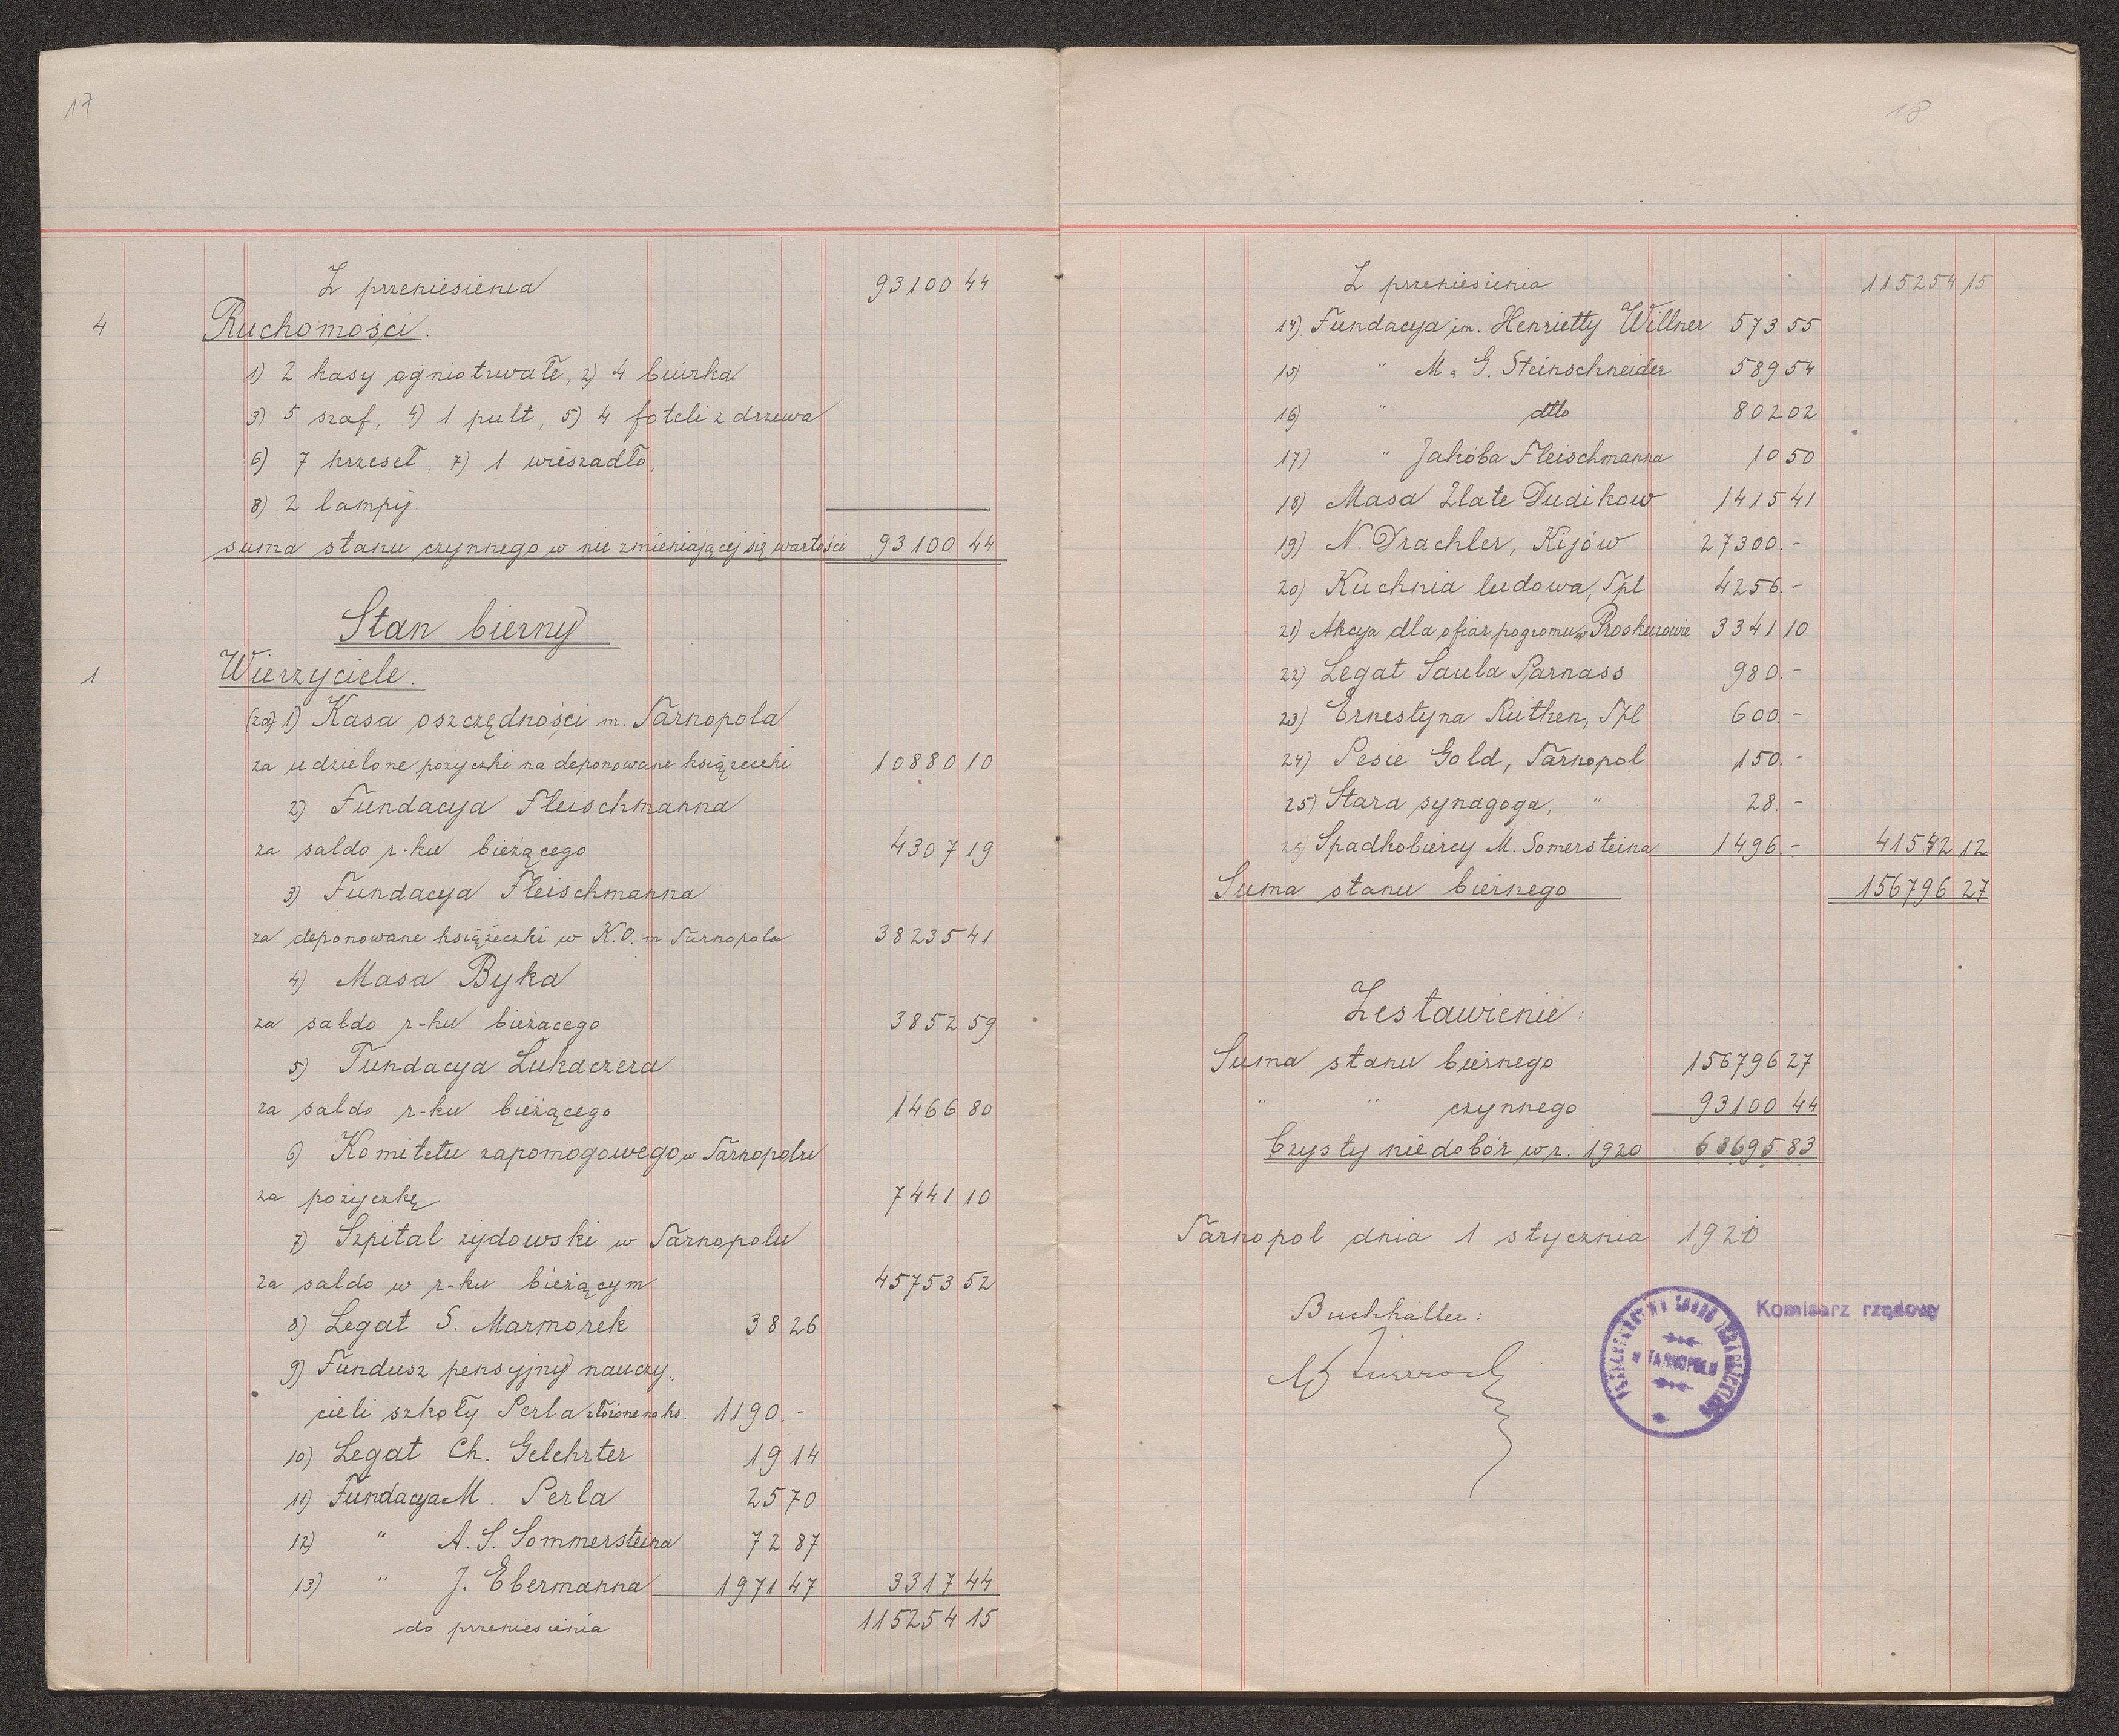 17
Z przeniesienia 93100 44
4 Ruchomości:
1) 2 kasy ogniotrwałe, 2) 4 biurka
3) 5 szaf, 4) 1 pult, 5) 4 foteli z drzewa
6) 7 krzeseł, 7) 1 wieszadło,
8) 2 lampy.
suma stanu czynnego w nie zmieniającej się wartości 93100 44
Stan bierny
1 Wierzyciele.
(za) 1) Kasa oszczędności m. Tarnopola
za udzielone pożyczki na deponowane książeczki 10880 10
2) Fundacya Fleischmanna
za saldo r-ku bieżącego 4307 19
3) Fundacya Fleischmanna
za deponowane książeczki w K.O. m Tarnopola 38235 41
4) Masa Byka
za saldo r-ku bieżacego 3852 59
5) Fundacya Lukaczera
za saldo r-ku bieżącego 1466 80
6) Komitetu zapomogowego w Tarnopolu
za pożyczkę 7441 10
7) Szpital żydowski w Tarnopolu
za saldo w r-ku bieżącym 45753 52
8) Legat S. Marmorek 38 26
9) Fundusz pensyjny nauczy„
cieli szkoły Perla złożone na ks. 1190.-
10) Legat Ch. Gelehrter 19 14
11) Fundacya M. Perla 25 70
12) " A. S. Sommersteina 72 87
13) " J. Ebermanna 1971 47 3317 44
do przeniesienia 115254 15
18
Z przeniesienia 115254 15
14) Fundacya im. Henrietty Willner 573 55
15) " M. G. Steinschneider 589 54
16) " dtto 802 02
17) " Jakóba Fleischmanna 10 50
18) Masa Zlate Dudikow 1415 41
19) N. Drachler, Kijów 27300.-
20) Kuchnia ludowa, Tpl 4256.-
21) Akcya dla ofiar pogromu w Proskurowie 3341 10
22) Legat Saula Parnass 980.-
23) Ernestyna Ruthen, Tpl 600.-
24) Pesie Gold, Tarnopol 150.-
25) Stara synagoga, " 28.-
26) Spadkobiercy M. Somersteina 1496.- 41542 12
Suma stanu biernego 156796 27
Zestawienie:
Suma stanu biernego 156796 27
" " czynnego 93100 44
Czysty niedobór w r. 1920 63695 83
Tarnopol dnia 1 stycznia 1920
Buchhalter:
Komisarz rządowy
W TARNOPOLU